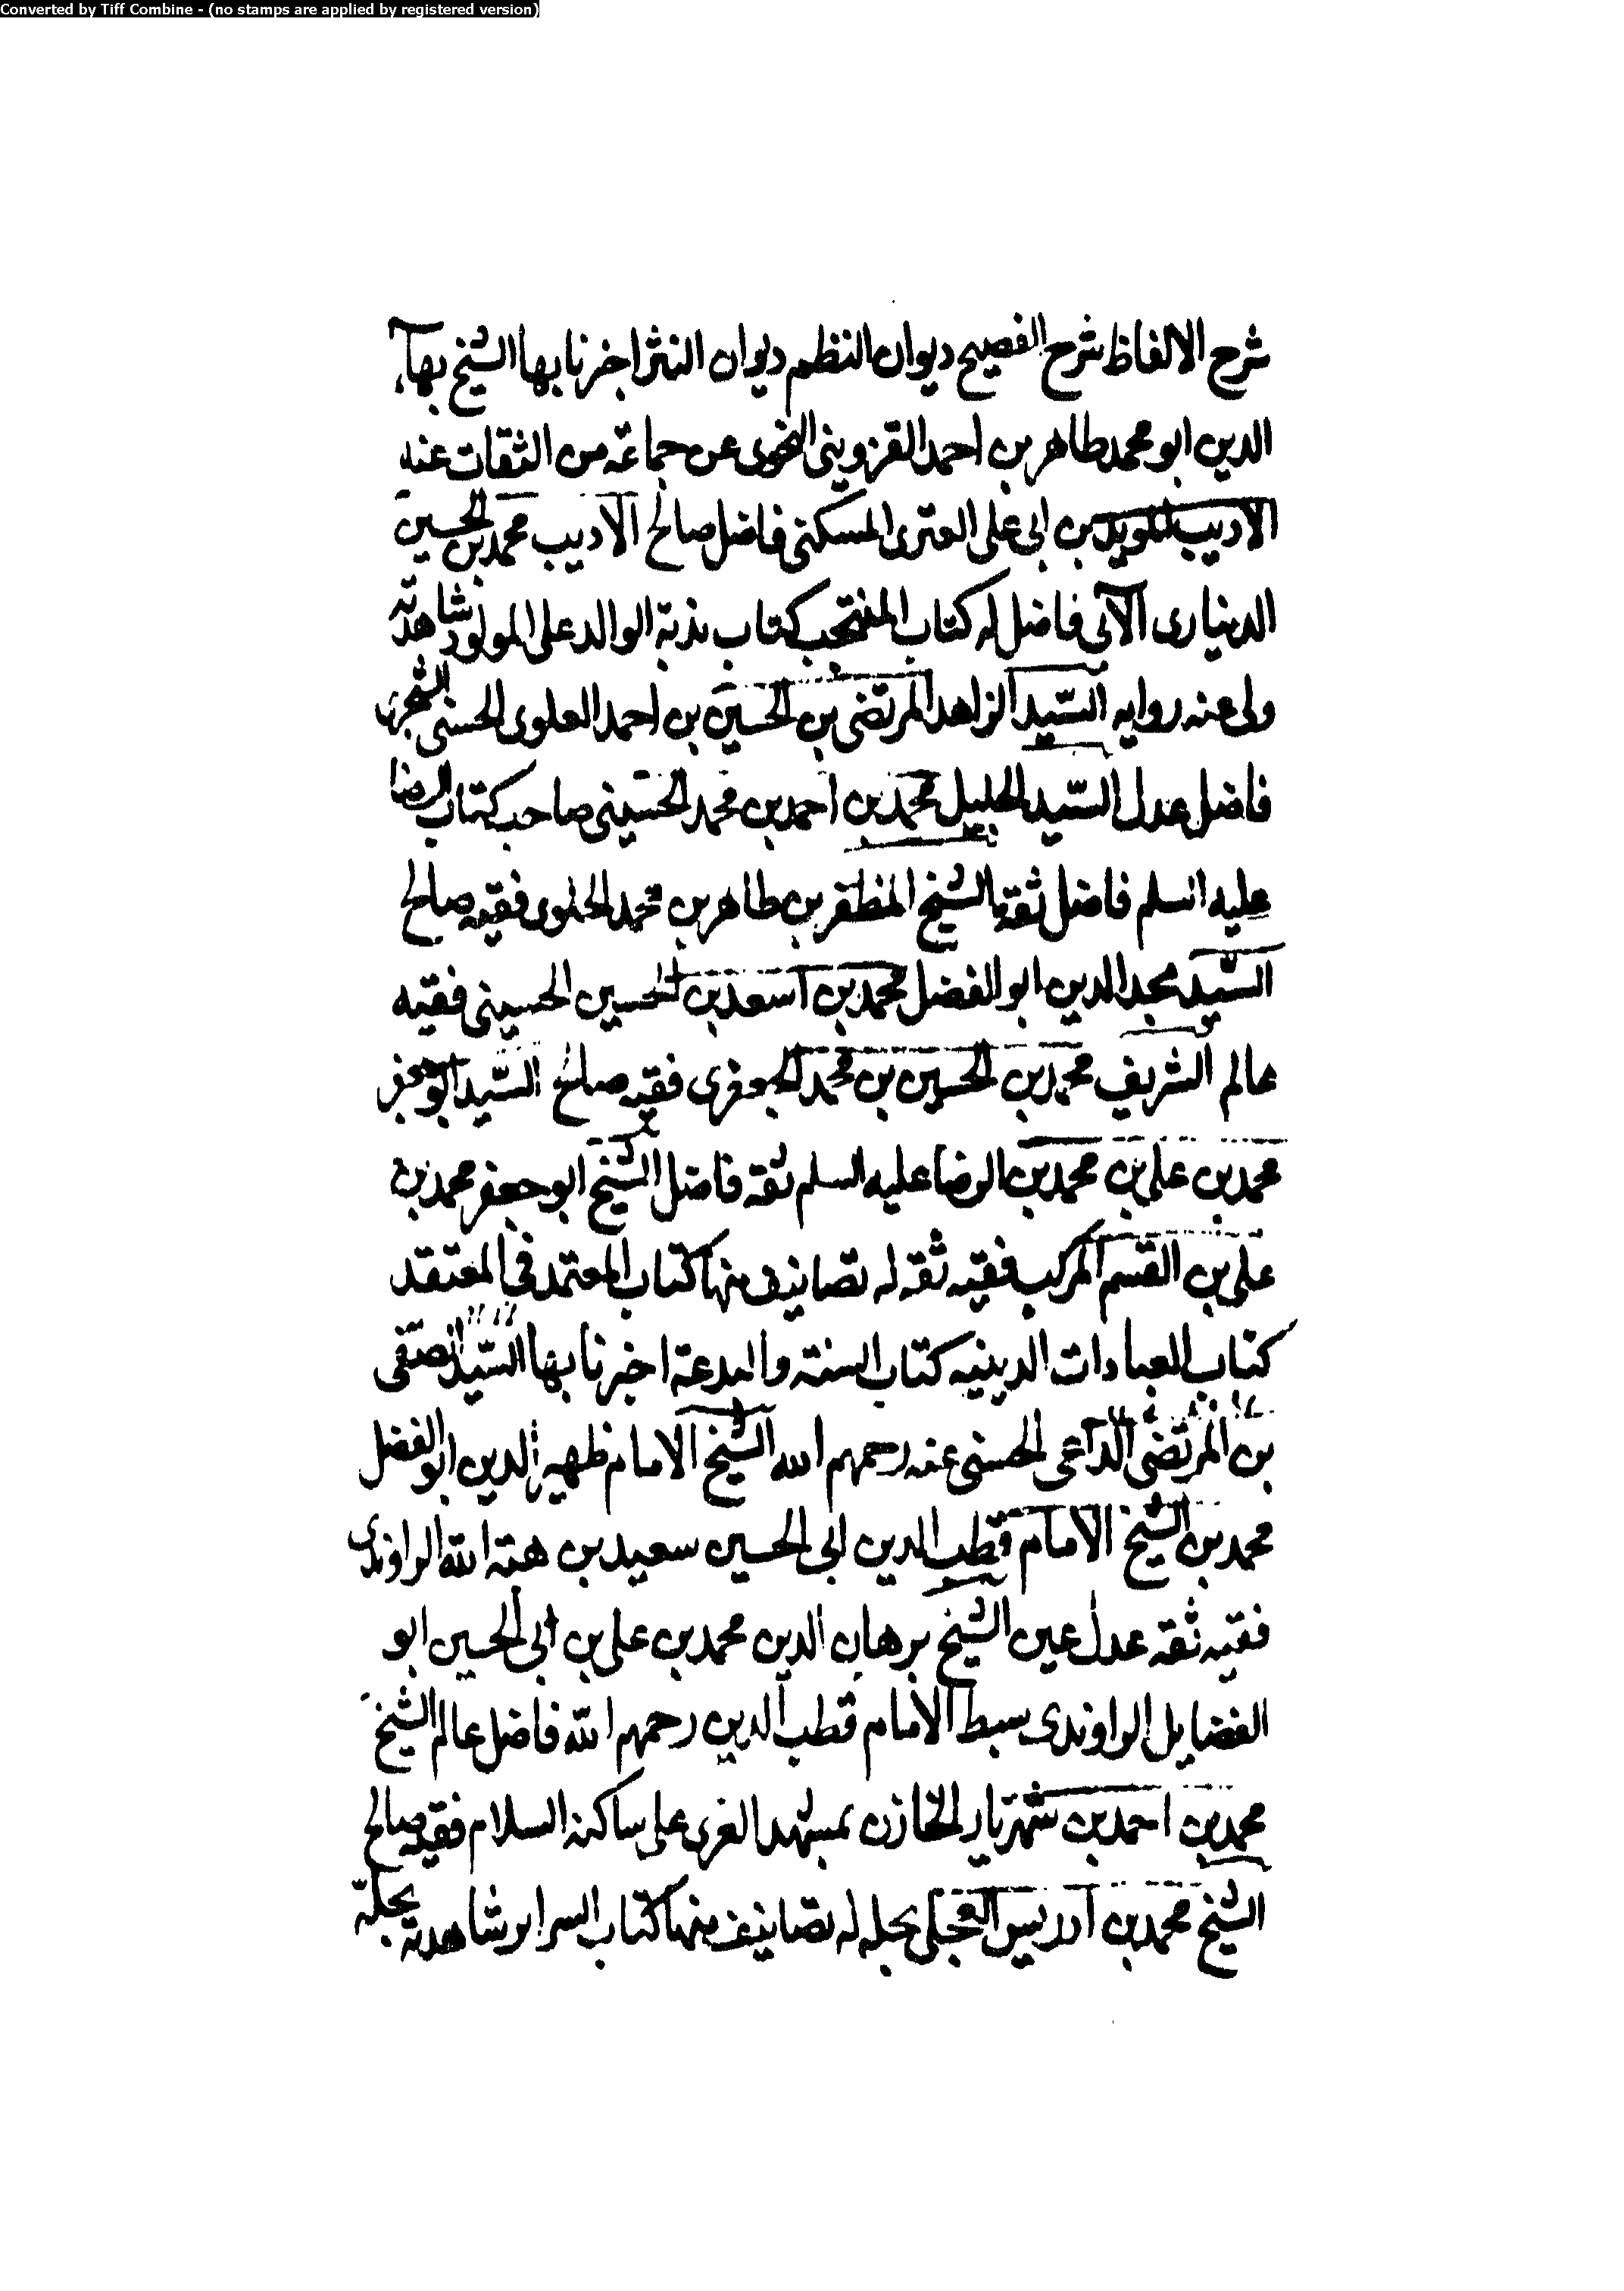 Converted by Tiff Combine - (no stamps are applied by registered version)
شرح الالفاظ شرح الفصيح ديوان النظم ديوان النثر اخبرنا بها الشيخ بهآء
الدين ابو محمد طاهر بن احمد القزويني النحوى عن جماعة من الثقات عنه
الاديب المويد بن ابى على العترى المسكنى فاضل صالح الاديب محمد بن الحسين
الدينارى الآبى فاضل له كتاب المنتجب كتاب ندبة الوالد على المولود شاهدته
ولى عنه روايه السّيد الزاهد المرتضى بن الحسين بن احمد العلوى الحسنى الشجرى
فاضل عدل السّيد الجليل محمد بن احمد بن محمد الحسينى صاحب كتاب الرضا
عليه السلم فاضل ثقة الشيخ المظفر بن طاهر بن محمد الحلوى فقيه صالح
السّيد مجد الدين ابو الفضل محمد بن اسعد بن الحسين الحسينى فقيه
عالم الشريف محمد بن الحسين بن محمد الجعفرى فقيه صالح السّيد ابو جعفر
محمد بن على بن محمد بن الرضا عليه السلم ثقة فاضل الشيخ ابو جعفر محمد بن
على بن القسم المركب فقيه ثقه له تصانيف منها كتاب المعتمد فى المعتقد
كتاب العبادات الدينيه كتاب السنة والبدعة اخبرنا بها السّيد الصفى
بن المرتضى الداعى الحسنى عنه رحمهم الله الشيخ الامام ظهير الدين ابو الفضل
محمد بن الشيخ الامام قطب الدين ابى الحسين سعيد بن هبة الله الراوندى
فقيه ثقه عدل عين الشيخ برهان الدين محمد بن على بن ابى الحسين ابو
الفضايل الراوندى سبط الامام قطب الدين رحمهم الله فاضل عالم الشيخ
محمد بن احمد بن شهريار الخازن بمشهد الغرى على ساكنه السلام فقيه صالح
الشيخ محمد بن ادريس العجلى بحله له تصانيف منها كتاب السراير شاهدته بحلة